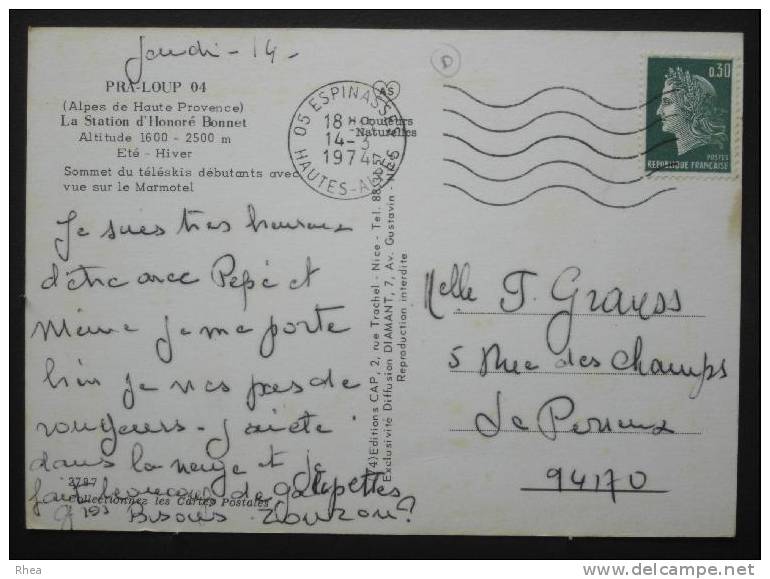 Jeudi - 14 -
PRA-LOUP 04
(Alpes de Haute Provence)
La Station d'Honoré Bonnet
Altitude 1600 - 2500 m
Eté - Hiver
Sommet du téléskis débutants avec
vue sur le Marmotel
Je suis très heureux
d'être avec Pépé et
Mémé je me porte
bien je n'es pas de
rougeurs - j'ai été
dans la neige et je
fait beaucoup de galipettes
gros Bisous
2787
Collectionnez les Cartes Postales
D
AS
Couleurs
Naturelles
05 ESPINASSES
18 H
14-3
1974
HAUTES-ALPES
0,30
POSTES
REPUBLIQUE FRANÇAISE
Editions CAP, 2, rue Trachel - Nice - Tel.
Exclusivité Diffusion DIAMANT, 7, Av. Gustavin - Nice
Reproduction interdite
Melle T. Grauss
5 Rue des Champs
Le Perreux
94170
Rhea
delcampe.net